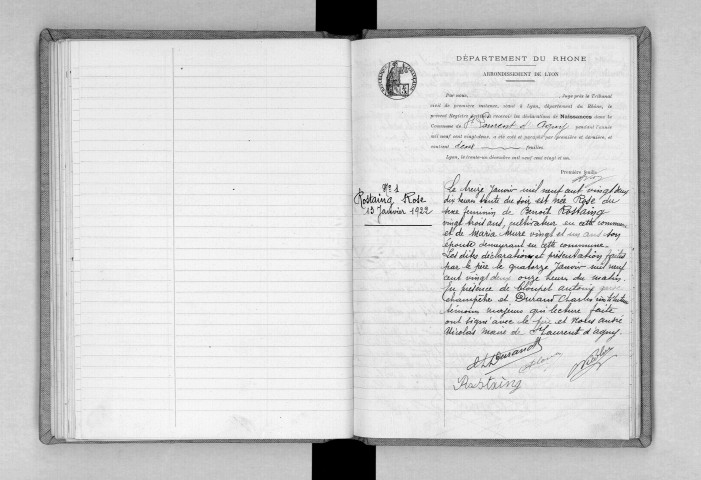 DÉPARTEMENT DU RHONE
ARRONDISSEMENT DE LYON
Par nous, , Juge près le Tribunal
civil de première instance, séant à Lyon, département du Rhône, le
présent Registre à recevoir les déclarations de Naissances dans la
Commune de St Laurent d'Agny pendant l'année
mil neuf cent vingt-deux, a été coté et paraphé par première et dernière, et
contient deux feuilles.
Lyon, le trente-un décembre mil neuf cent vingt et un.
Première feuille
No 1
Rostaing Rose
13 Janvier 1922
Le treize Janvier mil neuf cent vingt deux
dix heures trente du soir est née Rose du
sexe féminin de Benoit Rostaing
vingt trois ans, cultivateur en cette commune
et de Maria Mure vingt et un ans son
épouse demeurant en cette commune.
Les dites déclarations et présentation faites
par le père le quatorze Janvier mil neuf
cent vingt deux onze heures du matin
En présence de antoine garde
champêtre et Durand Charles instituteur
témoins majeurs qui lecture faite
ont signé avec le père et Nous André
Nicolas maire de St Laurent d'Agny.
Ch Durand
Rostaing